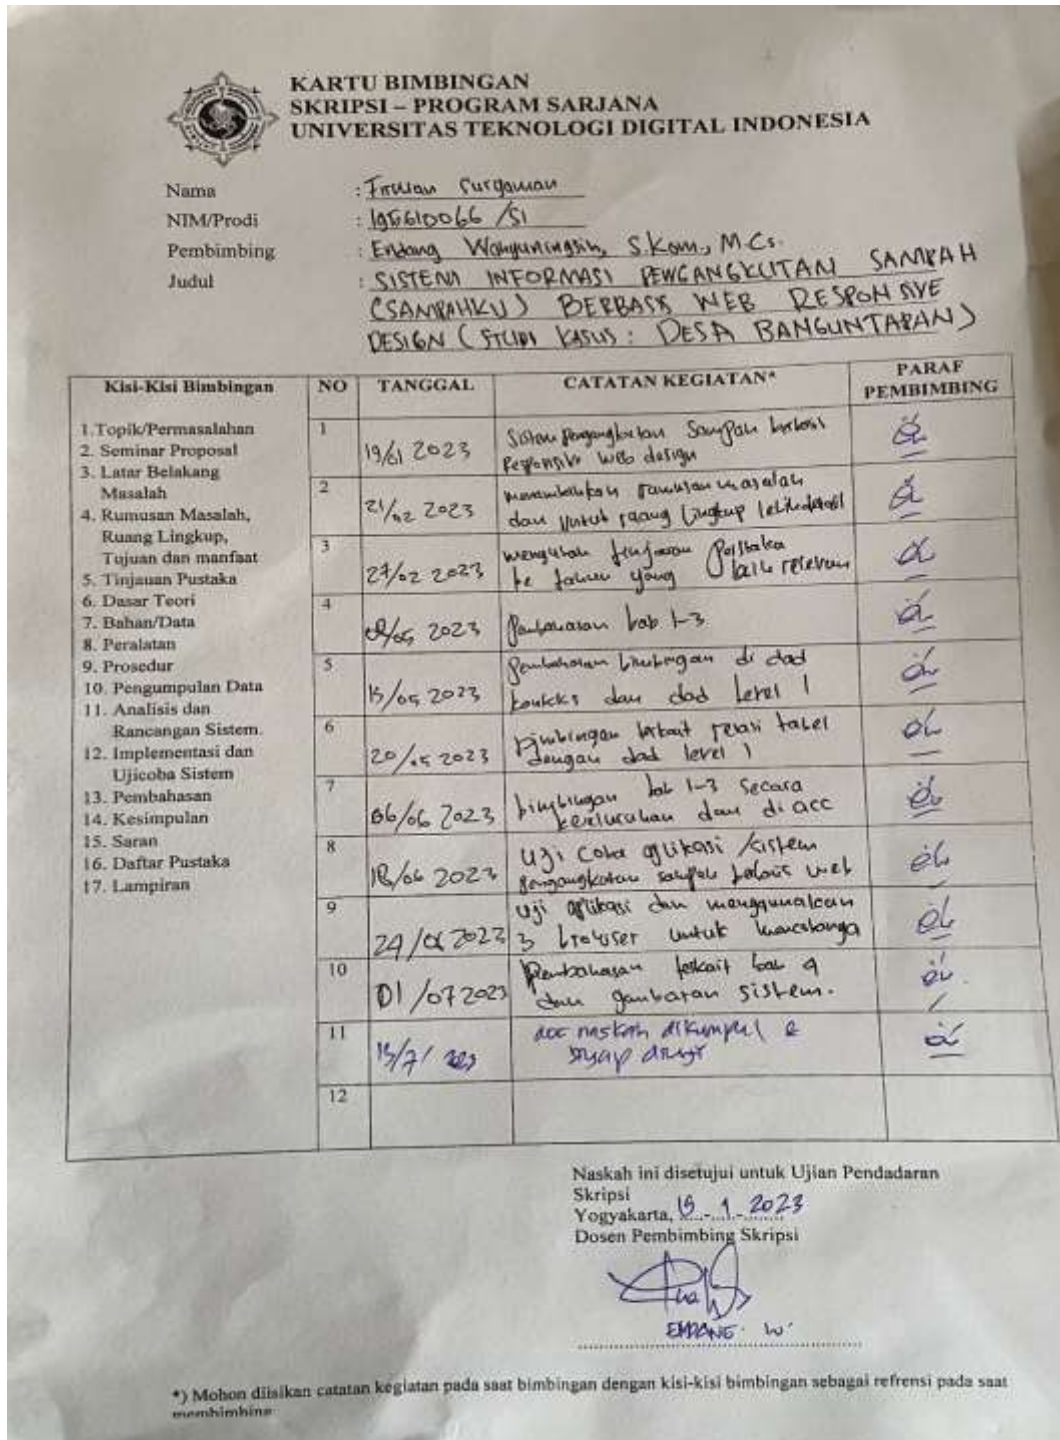 KARTU BIMBINGAN
SKRIPSI – PROGRAM SARJANA
UNIVERSITAS TEKNOLOGI DIGITAL INDONESIA
Nama :
NIM/Prodi : 195610066 /S1
Pembimbing : Endang Wahyuningsih, S.Kom., M.Cs.
Judul : SISTEM INFORMASI PENGANGKUTAN SAMPAH
(SAMPAHKU) BERBASIS WEB RESPONSIVE
DESIGN (STUDI KASUS : DESA BANGUNTAPAN)
Kisi-Kisi Bimbingan
1.Topik/Permasalahan
2. Seminar Proposal
3. Latar Belakang
Masalah
4. Rumusan Masalah,
Ruang Lingkup,
Tujuan dan manfaat
5. Tinjauan Pustaka
6. Dasar Teori
7. Bahan/Data
8. Peralatan
9. Prosedur
10. Pengumpulan Data
11. Analisis dan
Rancangan Sistem.
12. Implementasi dan
Ujicoba Sistem
13. Pembahasan
14. Kesimpulan
15. Saran
16. Daftar Pustaka
17. Lampiran
NO TANGGAL CATATAN KEGIATAN* PARAF
PEMBIMBING
1 2023 Sistem pengangkutan Sampah berbasis
Responsive web design
2 21/02 2023 menambahkan rumusan masalah
dan untuk ruang lingkup lebih detail
3 27/02 2023 mengubah tinjauan Pustaka
ke tahun yang relevan
4 2023 Pembahasan bab 1-3
5 15/05 2023 Pembahasan bimbingan di dad
konteks dan dad level 1
6 20/05 2023 bimbingan terkait relasi tabel
dengan dad level 1
7 06/06 2023 bimbingan bab 1-3 secara
keseluruhan dan di acc
8 18/06 2023 Uji coba aplikasi /sistem
pengangkutan sampah berbasis web
9 24/06 2023 Uji aplikasi dan menggunakan
3 browser untuk
10 01/07 2023 Pembahasan terkait bab 4
dan gambaran sistem.
11 15/7/ acc naskah dikumpul &
siap diuji
12
Naskah ini disetujui untuk Ujian Pendadaran
Skripsi
Yogyakarta, 2023
Dosen Pembimbing Skripsi
ENDANG W
*) Mohon diisikan catatan kegiatan pada saat bimbingan dengan kisi-kisi bimbingan sebagai refrensi pada saat
membimbing